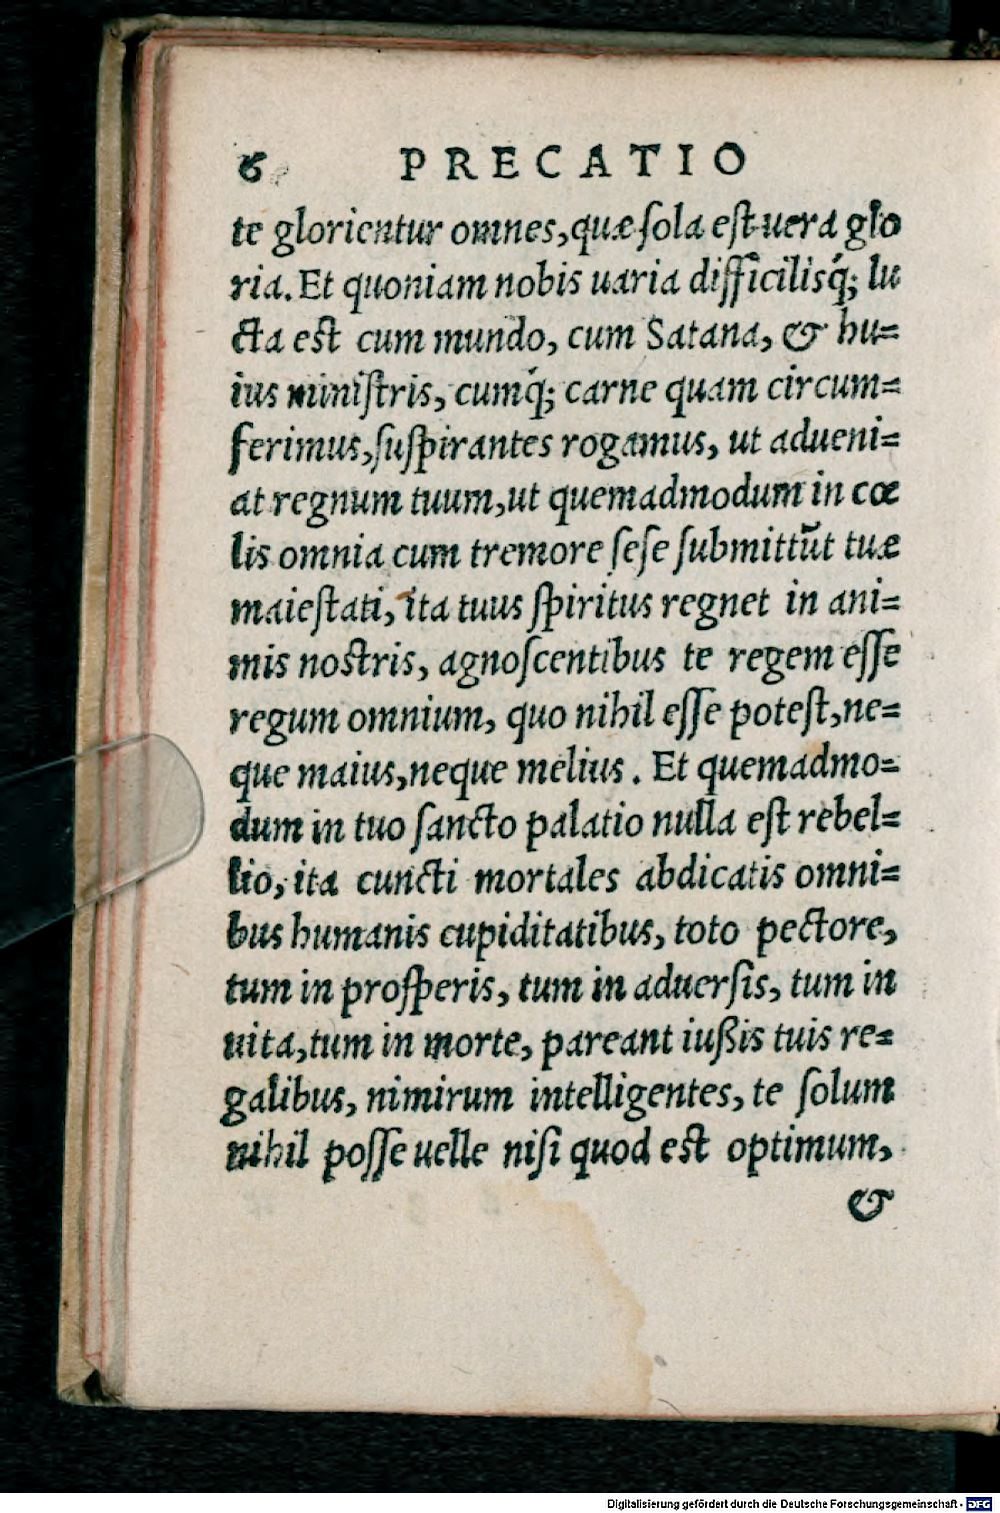 6 PRECATIO
te glorientur omnes, quæ ſola eſt uera glo
ria. Et quoniam nobis uaria difficilisq́; lu
cta est cum mundo, cum Satana, & hu=
ius miniſtris, cumq́; carne quam circum=
ferimus, ſuſpirantes rogamus, ut adueni=
at regnum tuum, ut quemadmodum in cœ
lis omnia cum tremore ſeſe ſubmittūt tuæ
maieſtati, ita tuus ſpiritus regnet in ani=
mis nostris, agnoſcentibus te regem eſſe
regum omnium, quo nihil eſſe poteſt, ne=
que maius, neque melius. Et quemadmo=
dum in tuo ſancto palatio nulla est rebel=
lio, ita cuncti mortales abdicatis omni=
bus humanis cupiditatibus, toto pectore,
tum in proſperis, tum in aduerſis, tum in
uita, tum in morte, pareant iußis tuis re=
galibus, nimirum intelligentes, te ſolum
nihil poſſe uelle niſi quod est optimum,
&
Digitalisierung gefördert durch die Deutsche Forschungsgemeinschaft - DFG